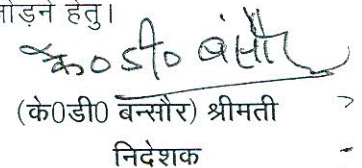 ोड़ने हेतु।
के० डी० बंसौर
(के0डी0 बन्सौर) श्रीमती
निदेशक